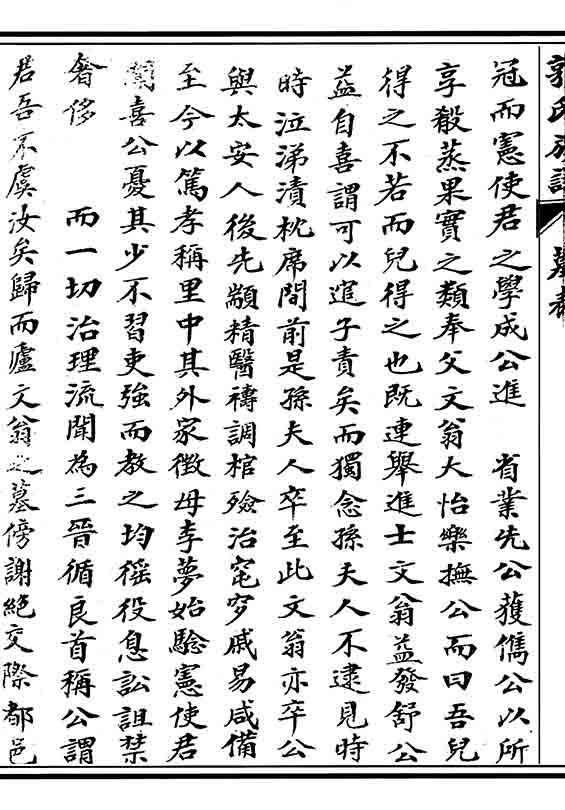 郭氏族譜 墓表
冠而憲使君之學成公進 省業先公獲儁公以所
享殽蒸果實之類奉父文翁大怡樂撫公而曰吾兒
得之不若而兒得之也既連舉進士文翁益發舒公
益自喜謂可以逭子責矣而獨念孫夫人不逮見時
時泣涕漬枕席間前是孫夫人卒至此文翁亦卒公
與太安人後先顓精醫禱調棺殮治窀穸戚易咸備
至今以篤孝稱里中其外家徵母李夢始驗憲使君
蘭喜公憂其少不習吏強而教之均徭役息訟詛禁
奢侈 而一切治理流聞為三晉循良首稱公謂
君吾不虞汝矣歸而廬文翁之墓傍謝絕交際都邑